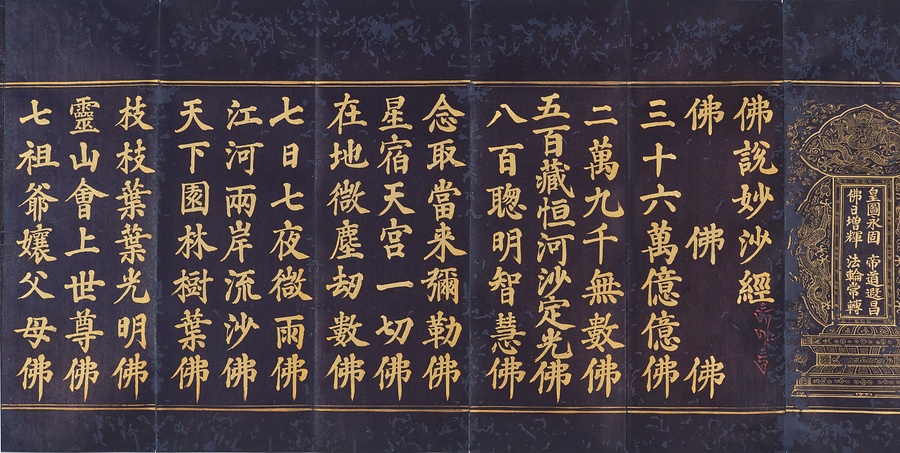 皇圖永固　帝道遐昌
佛日增輝　法輪常轉
佛說妙沙經
佛　佛　佛
三十六萬億億佛
二萬九千無數佛
五百藏恒河沙定光佛
八百聰明智慧佛
念取當来彌勒佛
星宿天宮一切佛
在地微塵劫數佛
七日七夜微雨佛
江河兩岸流沙佛
天下園林樹葉佛
枝枝葉葉光明佛
靈山會上世尊佛
七祖爺孃父母佛